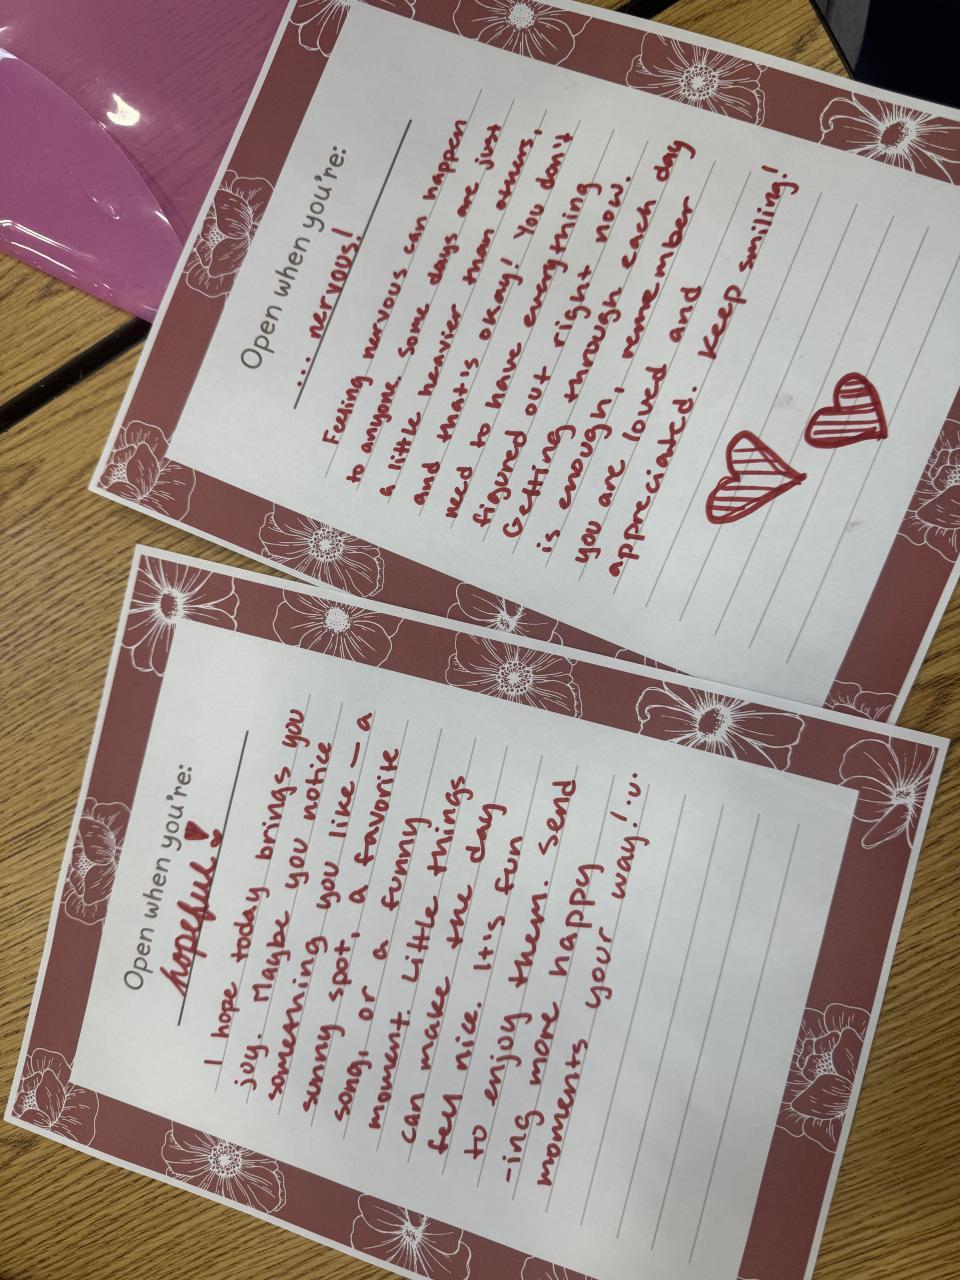 Open when you're:
... nervous!
Feeling nervous can happen
to anyone. Some days are just
a little heavier than others,
and that's okay! You don't
need to have everything
figured out right now.
Getting through each day
is enough, remember
you are loved and
appreciated. Keep smiling!
Open when you're:
hopeful
I hope today brings you
joy. Maybe you notice
something you like — a
sunny spot, a favorite
song, or a funny
moment. Little things
can make the day
feel nice. It's fun
to enjoy them. Send
-ing more happy
moments your way!